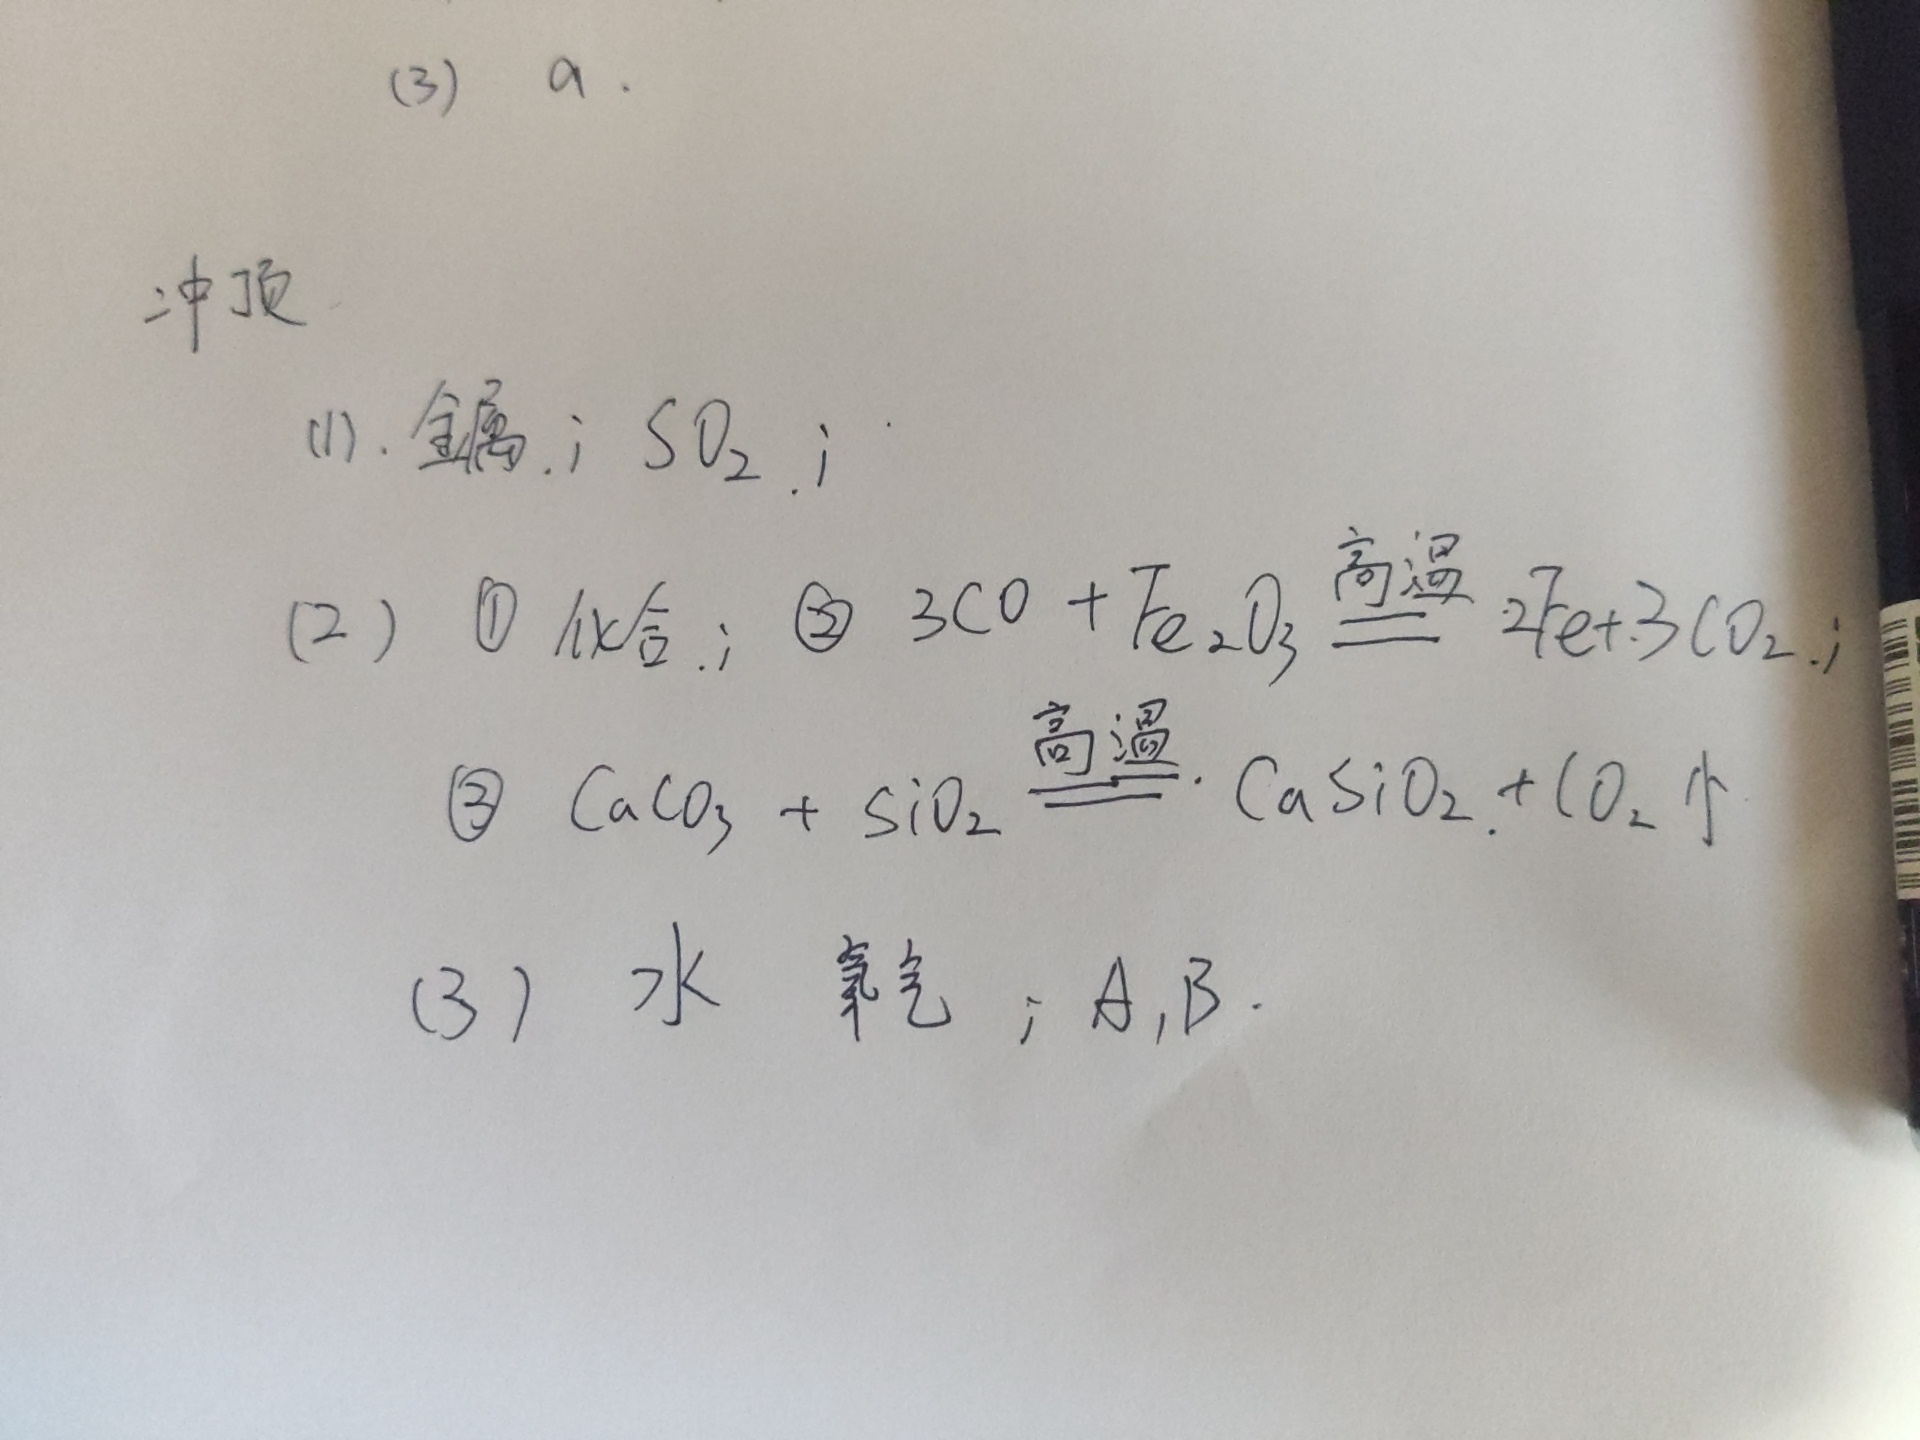 (3) a.
冲顶
(1). 金属.; SO₂.;
(2) ① 化合.; ② 3CO + Fe₂O₃ 高温 2Fe+3CO₂.;
③ CaCO₃ + SiO₂ 高温 CaSiO₂.+CO₂↑
(3) 水 氧气 ; A,B.